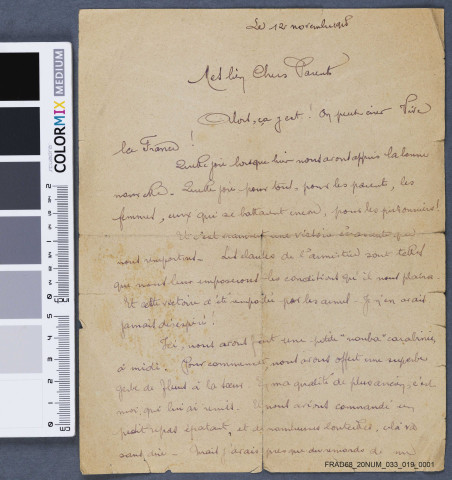 Le 12 novembre 1918
Mes biens Chers Parents
Alors, ça y est ! On peut crier Vive
la France !
Quelle joie lorsque hier nous avons appris la bonne
nouvelle. Quelle joie pour tous, pour les parents, les
femmes, ceux qui se battaient encore, pour les prisonniers !
Et c'est vraiment une victoire écrasante que
nous remportons. Les clauses de l'armistice sont telles
que nous leur imposerons les conditions qu'il nous plaira.
Et cette victoire a été remportée par les armes. Je n'en avais
jamais désespéré !
Ici, nous avons fait une petite "nouba" carabinée,
à midi. Pour commencer nous avons offert une superbe
gerbe de fleurs à la sœur. En ma qualité de plus ancien, c'est
moi qui lui ai remis. Et nous avions commandé un
petit repas épatant, et de nombreuses bouteilles, cela va
sans dire. Mais j'avais presque du remords de me
COLORMIX MEDIUM
FRAD68_20NUM_033_019_0001